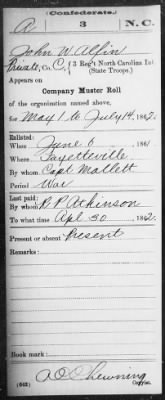 (Confederate.)
A 3 N. C.
John W. Allin
Private, Co. C, 3 Reg't North Carolina Inf
(State Troops.)
Appears on
Company Muster Roll
of the organization named above,
for May 1 to July 14, 1862.
Enlisted:
When June 6, 186
Where Fayetteville
By whom Capt Mallett
Period War
Last paid:
By whom R P Atkinson
To what time Apl 30, 1862.
Present or absent Present
Remarks:
Book mark:
(642)
Copyist.